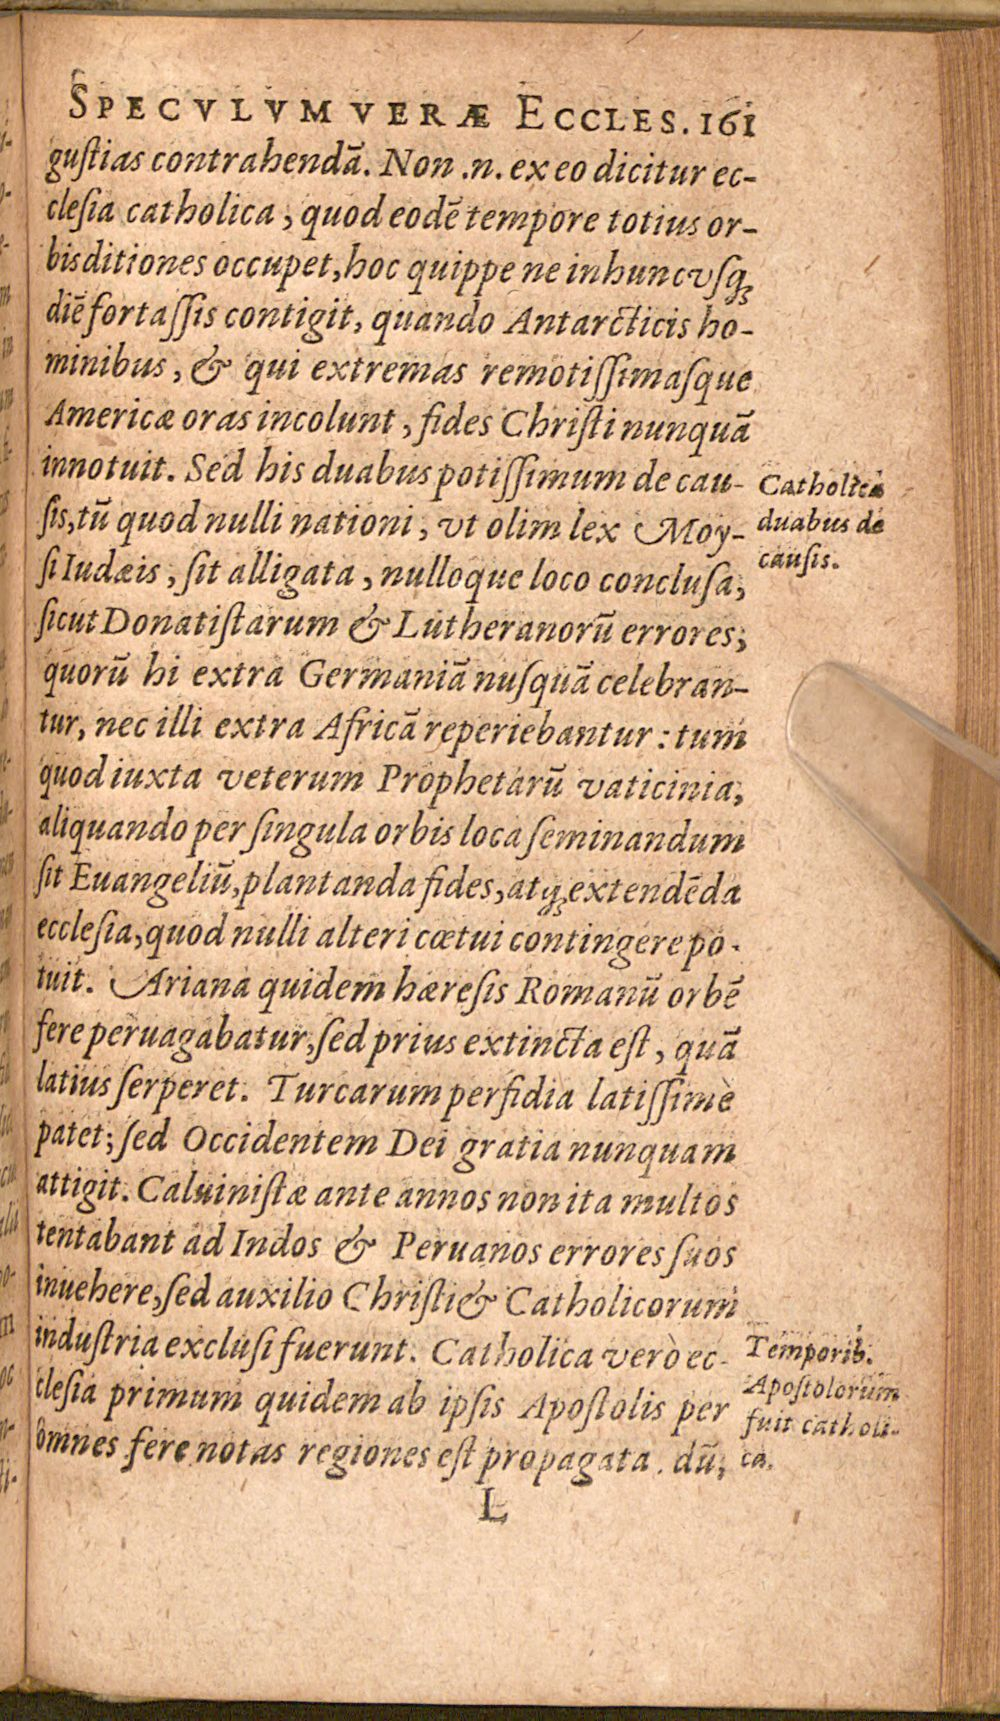 SPECVLVM VERÆ ECCLES. 161
guſtias contrahendā. Non .n. ex eo dicitur ec-
cleſia catholica, quod eodē tempore totius or-
bis ditiones occupet, hoc quippe ne in hunc vſqꝫ
diē fortaſſis contigit, quando Antarcticis ho-
minibus, & qui extremas remotiſſimaſque
Americæ oras incolunt, fides Chriſti nunquā
innotuit. Sed his duabus potiſſimum de cau-
ſis, tū quod nulli nationi, vt olim lex Moy-
ſi Iudæis, ſit alligata, nulloque loco concluſa,
ſicut Donatiſtarum & Lutheranorū errores,
quorū hi extra Germaniā nuſquā celebran-
tur, nec illi extra Africā reperiebantur: tum
quod iuxta veterum Prophetarū vaticinia,
aliquando per ſingula orbis loca ſeminandum
ſit Euangeliū, plantanda fides, atqꝫ extendēda
eccleſia, quod nulli alteri cœtui contingere po-
tuit. Ariana quidem hæreſis Romanū orbē
fere peruagabatur, ſed prius extincta eſt, quā
latius ſerperet. Turcarum perfidia latiſſimè
patet; ſed Occidentem Dei gratia nunquam
attigit. Caluiniſtæ ante annos non ita multos
tentabant ad Indos & Peruanos errores ſuos
inuehere, ſed auxilio Chriſti & Catholicorum
induſtria excluſi fuerunt. Catholica verò ec-
cleſia primum quidem ab ipſis Apoſtolis per
omnes fere notas regiones eſt propagata. dū,
L
Catholica
duabus de
cauſis.
Temporib.
Apoſtolorum
fuit catholi-
ca.